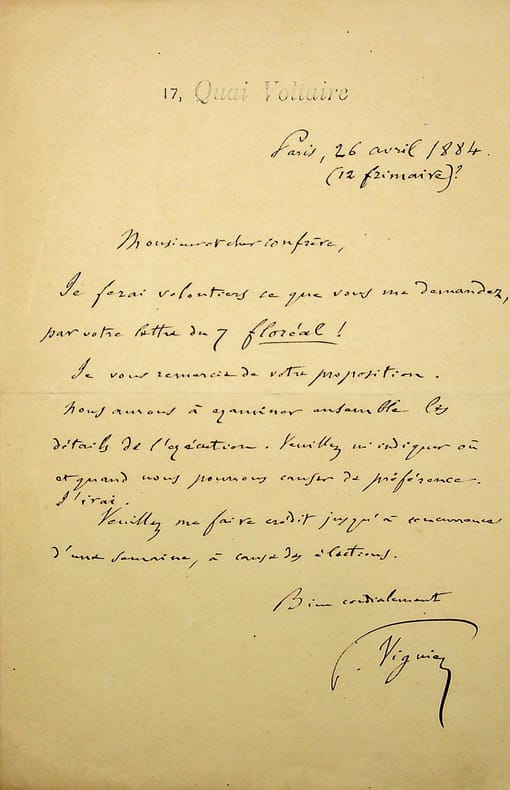 17, Quai Voltaire
Paris, 26 avril 1884.
(12 frimaire)?
Monsieur et cher confrère,
Je ferai volontiers ce que vous me demandez,
par votre lettre du 7 floréal !
Je vous remercie de votre proposition.
Nous aurons à examiner ensemble les
détails de l'exécution. Veuillez m'indiquer où
et quand nous pourrons causer de préférence.
J'irai.
Veuillez me faire crédit jusqu'à concurrence
d'une semaine, à cause des élections.
Bien cordialement
P. Viguier